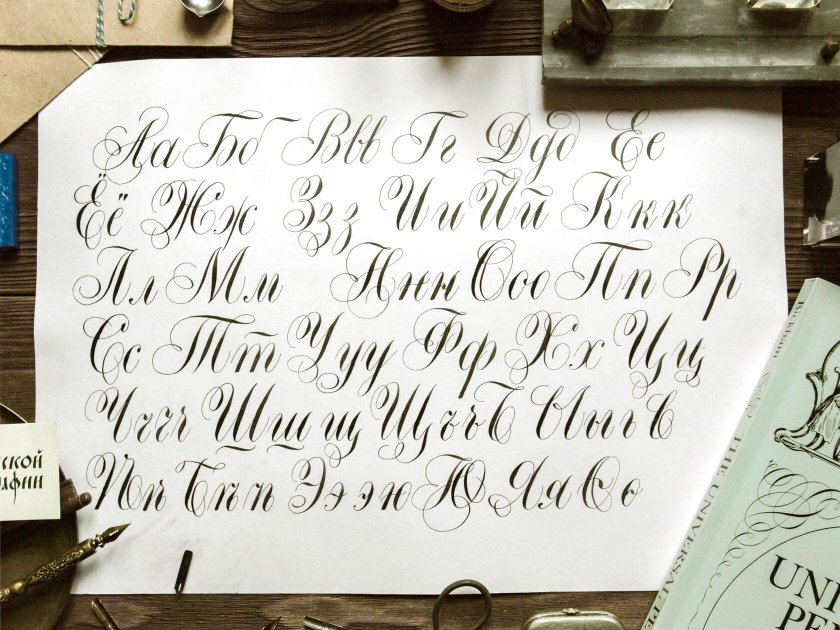 Аа Бб Ввв Гг Дд д Ее
Ёё Жж Ззз Ии Йй Ккк
Лл Мм Ннн Ооо Пп Рр
Сс Тт Ууу Фф Хх Цц
Ччч Шшщ Щъъ Ыыь
Ээээ Юю Яя
ской
афии
THE UNIVERSAL PE
UNI
PEN